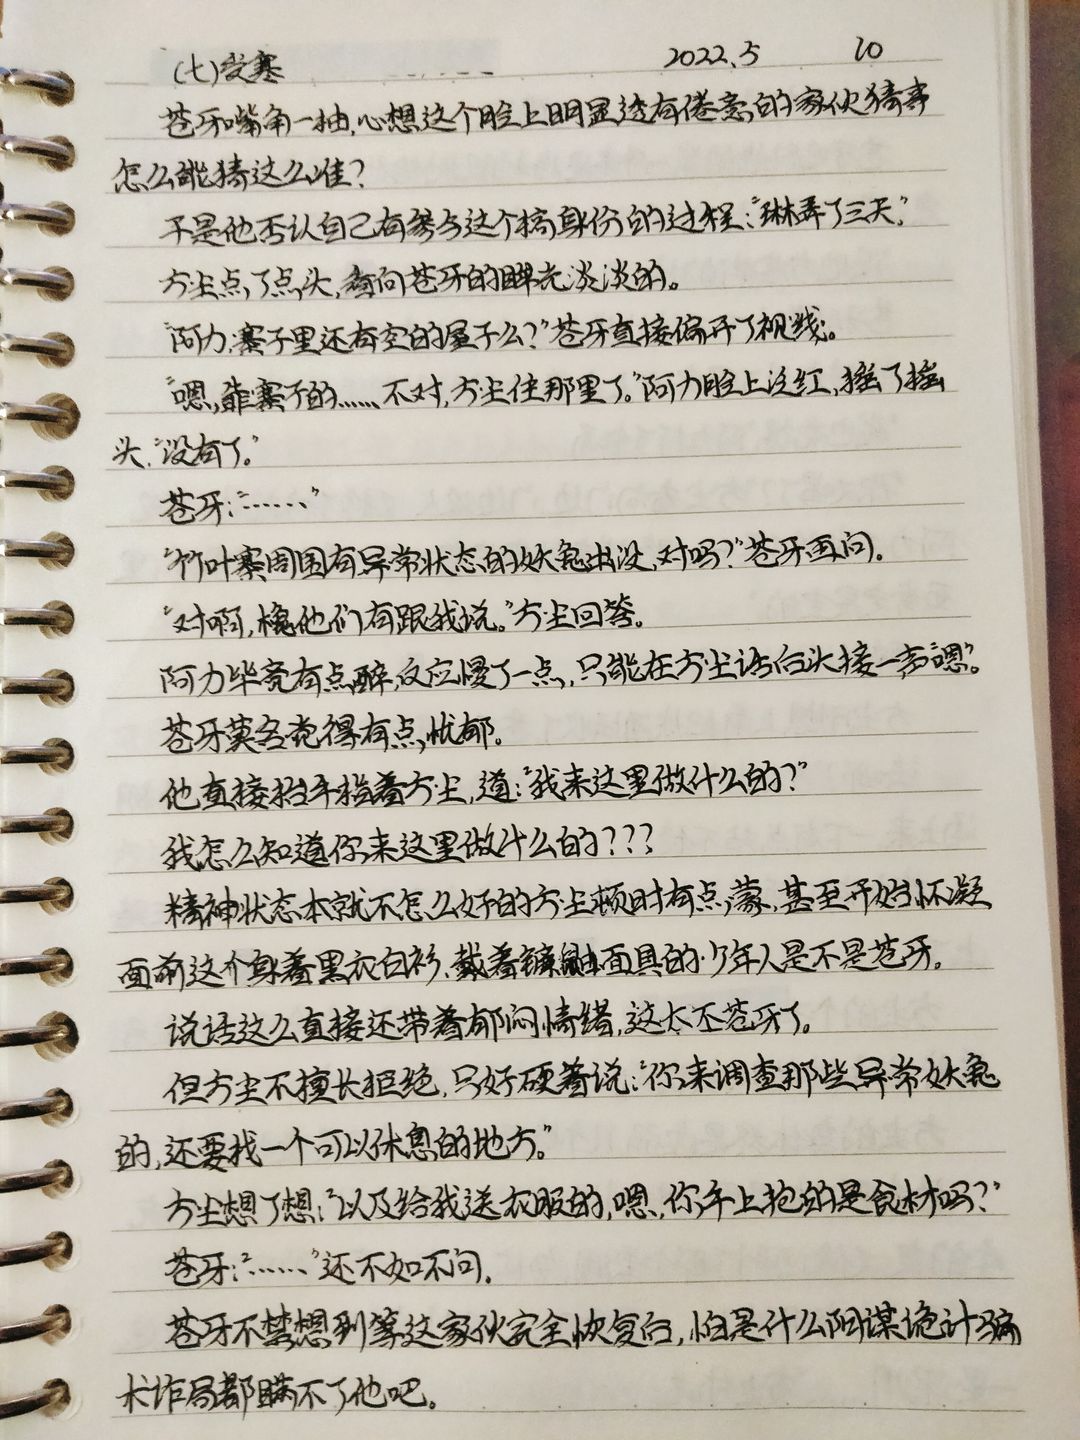 (七)受寒 2022.5 10
苍牙嘴角一抽,心想这个脸上明显透有倦意的家伙猜事
怎么能猜这么准?
于是他否认自己有参与这个搞身份的过程:“琳弄了三天。”
方尘点了点头,看向苍牙的眸光淡淡的。
“阿力,寨子里还有空的屋子么?”苍牙直接偏开了视线。
“嗯,靠寨子的……不对,方尘住那里了。”阿力脸上泛红,摇了摇
头,“没有了。”
苍牙:“……”
“竹叶寨周围有异常状态的妖兔出没,对吗?”苍牙再问。
“对啊,槐他们有跟我说。”方尘回答。
阿力毕竟有点醉,反应慢了一点,只能在方尘话后头接一声“嗯”。
苍牙莫名觉得有点忧郁。
他直接抬手指着方尘,道:“我来这里做什么的?”
我怎么知道你来这里做什么的???
精神状态本就不怎么好的方尘顿时有点蒙,甚至开始怀凝
面前这个身着黑衣白衫,戴着镰鼬面具的少年人是不是苍牙。
说话这么直接还带着郁闷情绪,这太不苍牙了。
但方尘不擅长拒绝,只好硬着说:“你来调查那些异常妖兔
的,还要找一个可以休息的地方。”
方尘想了想:“以及给我送衣服的,嗯,你手上抱的是食材吗?”
苍牙:“……”还不如不问。
苍牙不禁想到等这家伙完全恢复后,怕是什么阴谋诡计骗
术诈局都瞒不了他吧。